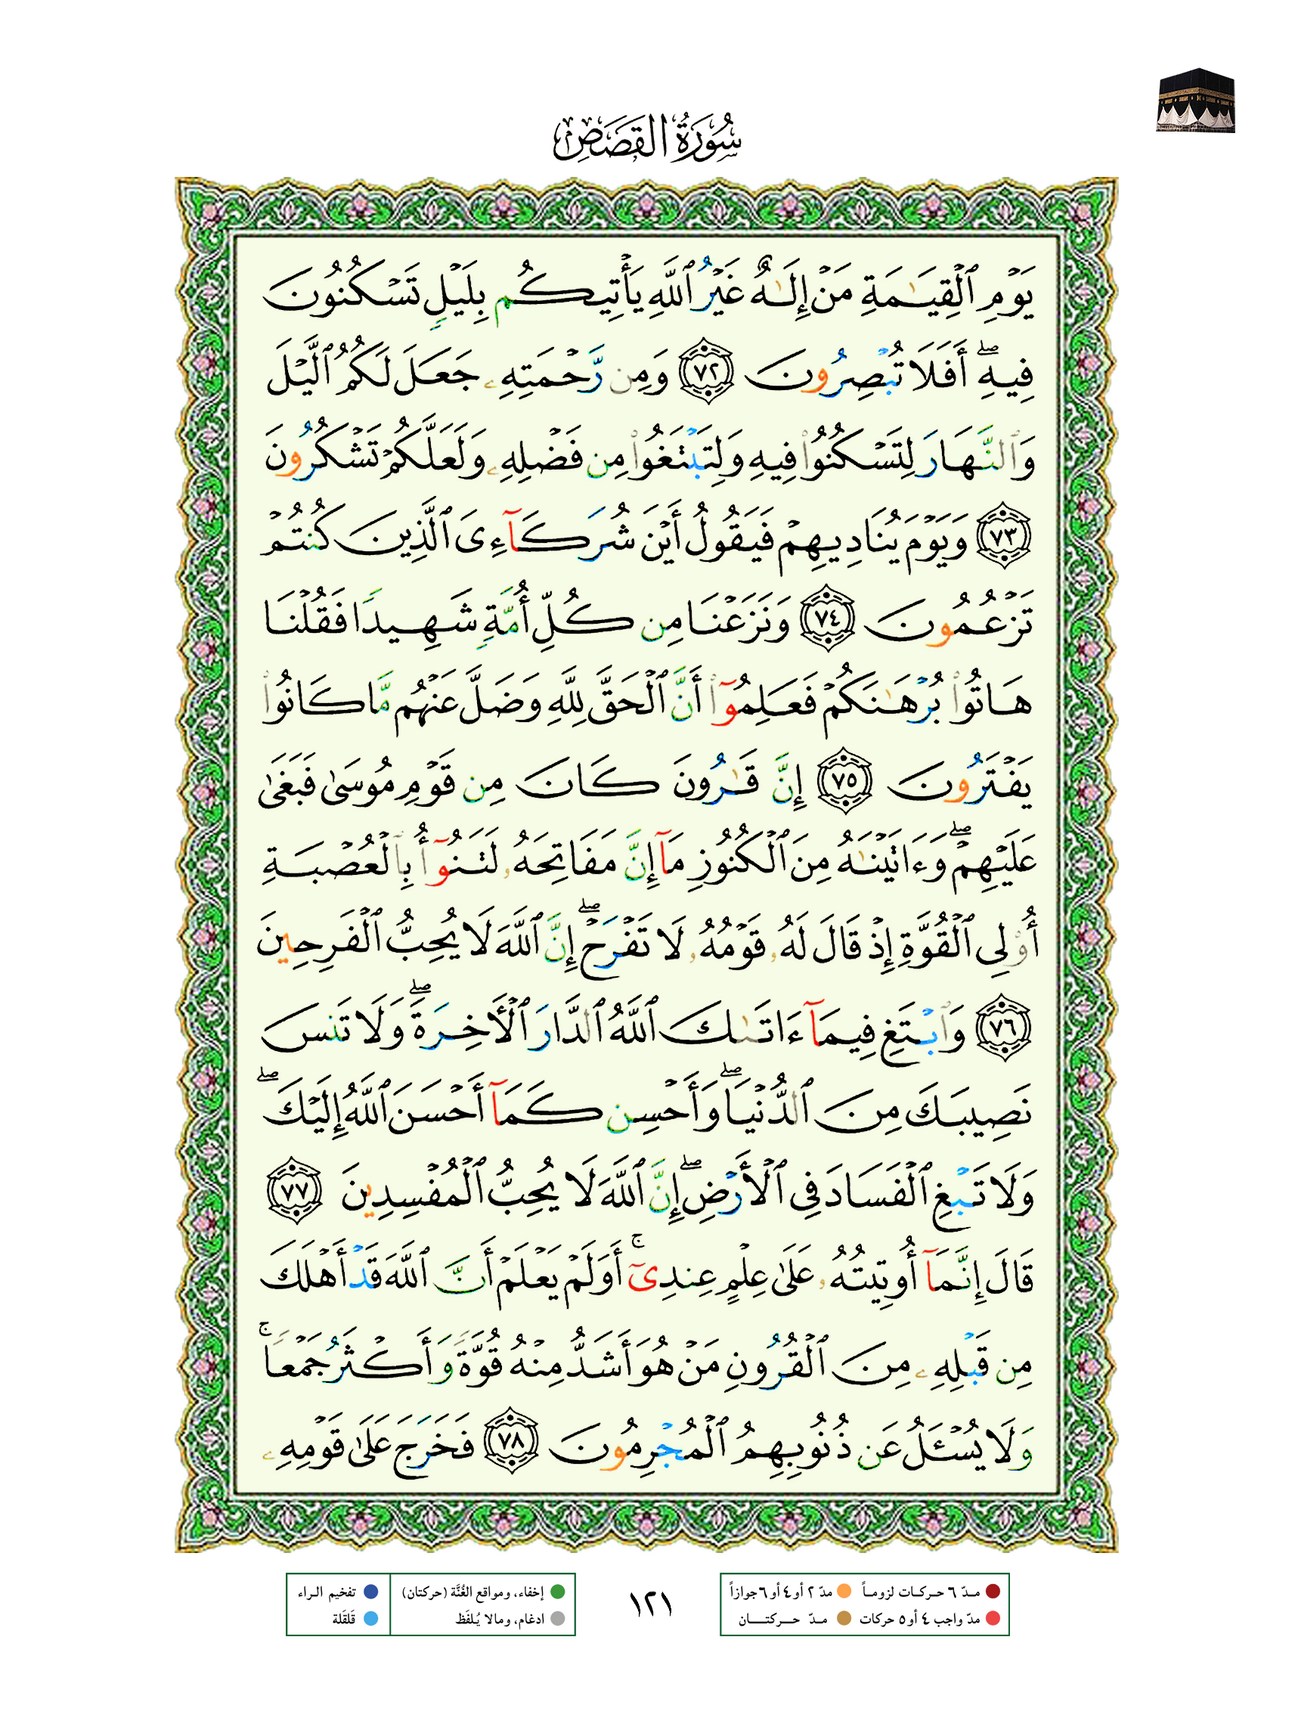 سُورَةُ القَصَصِ
يَوْمِ ٱلْقِيَـٰمَةِ مَنْ إِلَـٰهٌ غَيْرُ ٱللَّهِ يَأْتِيكُم بِلَيْلٍ تَسْكُنُونَ
فِيهِ ۖ أَفَلَا تُبْصِرُونَ ٧٢ وَمِن رَّحْمَتِهِۦ جَعَلَ لَكُمُ ٱلَّيْلَ
وَٱلنَّهَارَ لِتَسْكُنُوا۟ فِيهِ وَلِتَبْتَغُوا۟ مِن فَضْلِهِۦ وَلَعَلَّكُمْ تَشْكُرُونَ
٧٣ وَيَوْمَ يُنَادِيهِمْ فَيَقُولُ أَيْنَ شُرَكَآءِىَ ٱلَّذِينَ كُنتُمْ
تَزْعُمُونَ ٧٤ وَنَزَعْنَا مِن كُلِّ أُمَّةٍ شَهِيدًا فَقُلْنَا
هَاتُوا۟ بُرْهَـٰنَكُمْ فَعَلِمُوٓا۟ أَنَّ ٱلْحَقَّ لِلَّهِ وَضَلَّ عَنْهُم مَّا كَانُوا۟
يَفْتَرُونَ ٧٥ إِنَّ قَـٰرُونَ كَانَ مِن قَوْمِ مُوسَىٰ فَبَغَىٰ
عَلَيْهِمْ ۖ وَءَاتَيْنَـٰهُ مِنَ ٱلْكُنُوزِ مَآ إِنَّ مَفَاتِحَهُۥ لَتَنُوٓأُ بِٱلْعُصْبَةِ
أُو۟لِى ٱلْقُوَّةِ إِذْ قَالَ لَهُۥ قَوْمُهُۥ لَا تَفْرَحْ ۖ إِنَّ ٱللَّهَ لَا يُحِبُّ ٱلْفَرِحِينَ
٧٦ وَٱبْتَغِ فِيمَآ ءَاتَىٰكَ ٱللَّهُ ٱلدَّارَ ٱلْـَٔاخِرَةَ ۖ وَلَا تَنسَ
نَصِيبَكَ مِنَ ٱلدُّنْيَا ۖ وَأَحْسِن كَمَآ أَحْسَنَ ٱللَّهُ إِلَيْكَ ۖ
وَلَا تَبْغِ ٱلْفَسَادَ فِى ٱلْأَرْضِ ۖ إِنَّ ٱللَّهَ لَا يُحِبُّ ٱلْمُفْسِدِينَ ٧٧
قَالَ إِنَّمَآ أُوتِيتُهُۥ عَلَىٰ عِلْمٍ عِندِىٓ ۚ أَوَلَمْ يَعْلَمْ أَنَّ ٱللَّهَ قَدْ أَهْلَكَ
مِن قَبْلِهِۦ مِنَ ٱلْقُرُونِ مَنْ هُوَ أَشَدُّ مِنْهُ قُوَّةً وَأَكْثَرُ جَمْعًا ۚ
وَلَا يُسْـَٔلُ عَن ذُنُوبِهِمُ ٱلْمُجْرِمُونَ ٧٨ فَخَرَجَ عَلَىٰ قَوْمِهِۦ
مـدّ ٦ حـركـات لزومـاً مدّ ٢ أو ٤ أو ٦ جوازاً
مدّ واجب ٤ أو ٥ حركات مـدّ حـــركتــــان
١٢١
إخفاء، ومواقع الغُنَّة (حركتان) تفخيم الـراء
ادغام، ومالا يُـلفَظ قَلقَلة